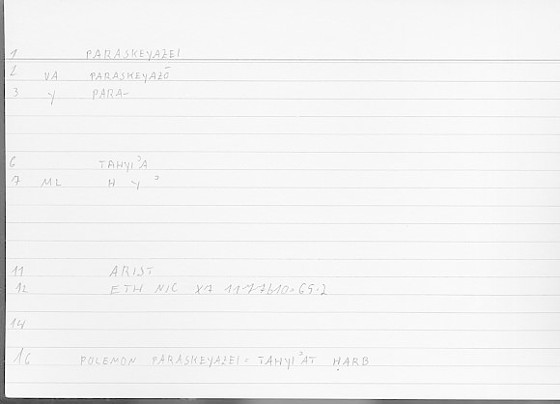 1 PARASKEYAZEI
2 VA PARASKEYAZŌ
3 Y PARA-
6 TAHYI'A
7 ML H Y '
11 ARIST
12 ETH NIC X7 1177b10-
14
16 POLEMON PARASKEYAZEI = TAHYI'AT ḤARB